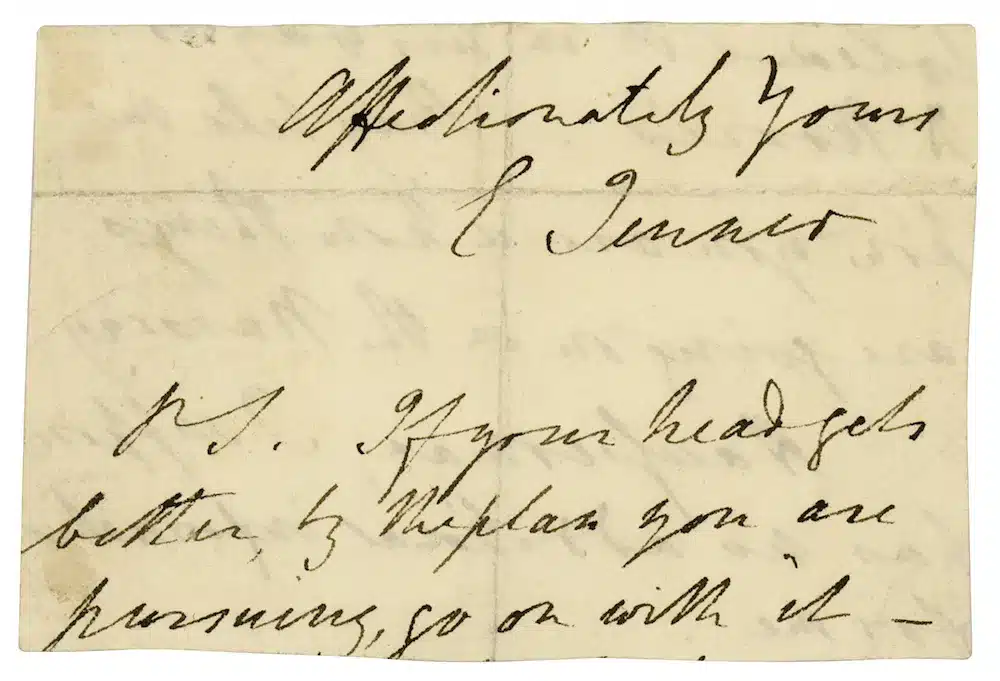 Affectionately Yours
E Jenner
P S. If your head gets
better, by the plan you are
pursuing, go on with it –